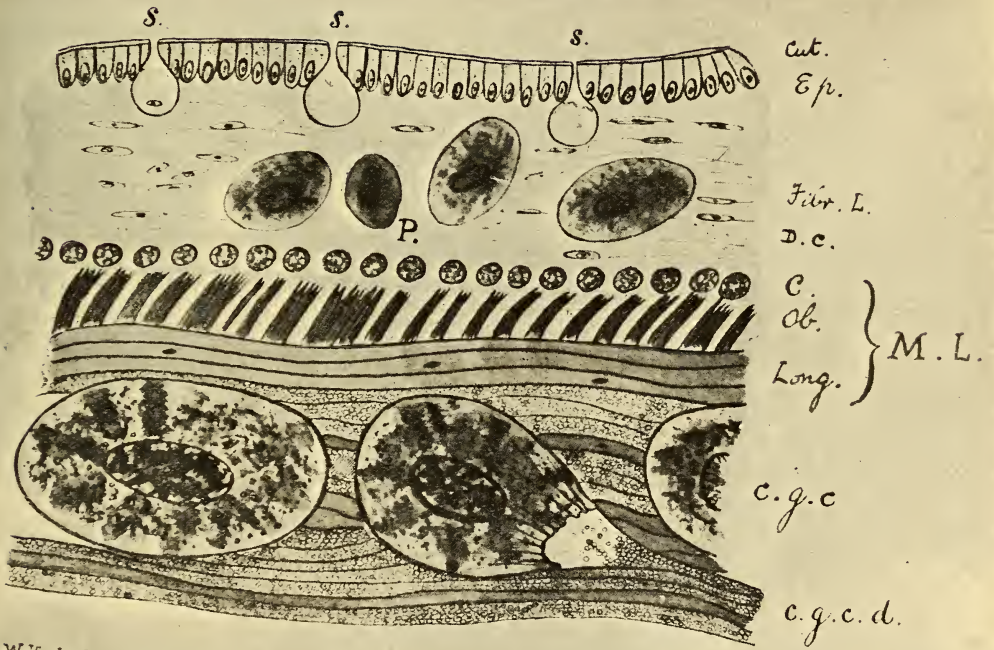 S. S. S.
Cut.
Ep.
Fibr. L.
P.
D.c.
C.
Ob.
M.L.
Long.
c.g.c
c.g.c.d.